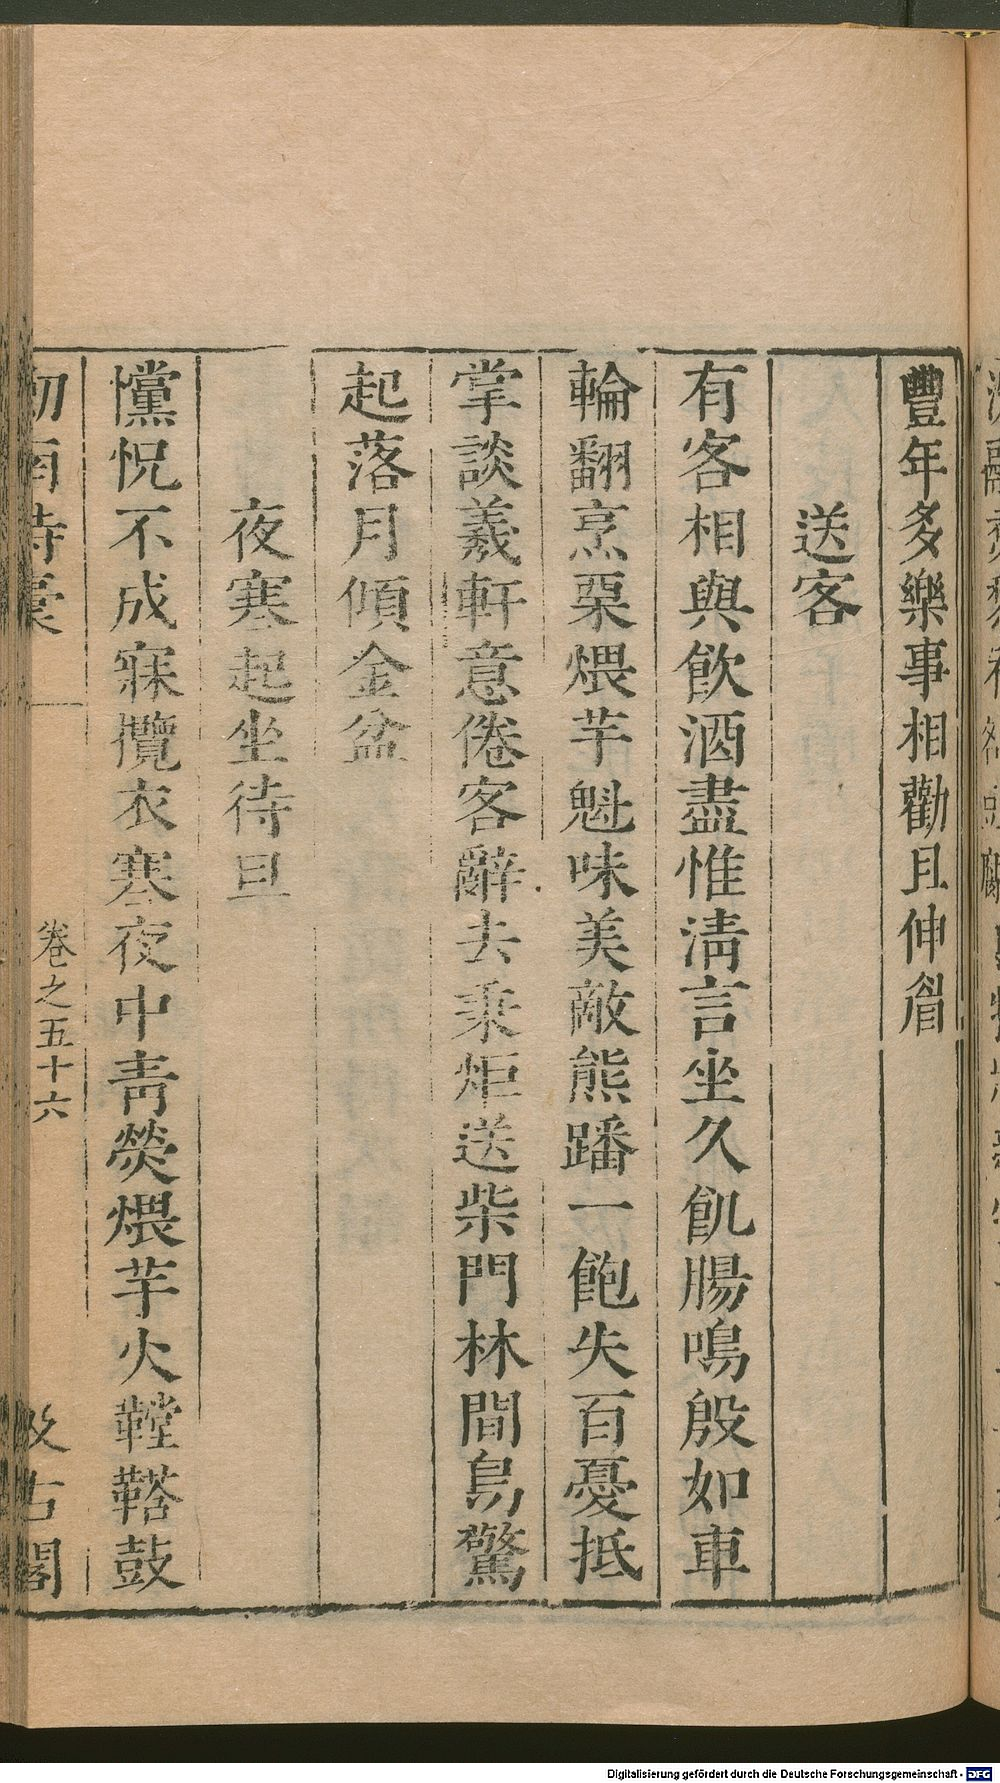 豐年多樂事相勸且伸眉
送客
有客相與飲酒盡惟清言坐久飢腸鳴殷如車
輪翻烹栗煨芋魁味美敵熊蹯一飽失百憂抵
掌談羲軒意倦客辭去秉炬送柴門林間鳥驚
起落月傾金盆
夜寒起坐待旦
戃怳不成寐攬衣寒夜中青熒煨芋火鞺鞳鼓
劍南詩稾
卷之五十六
汲古閣
Digitalisierung gefördert durch die Deutsche Forschungsgemeinschaft - DFG